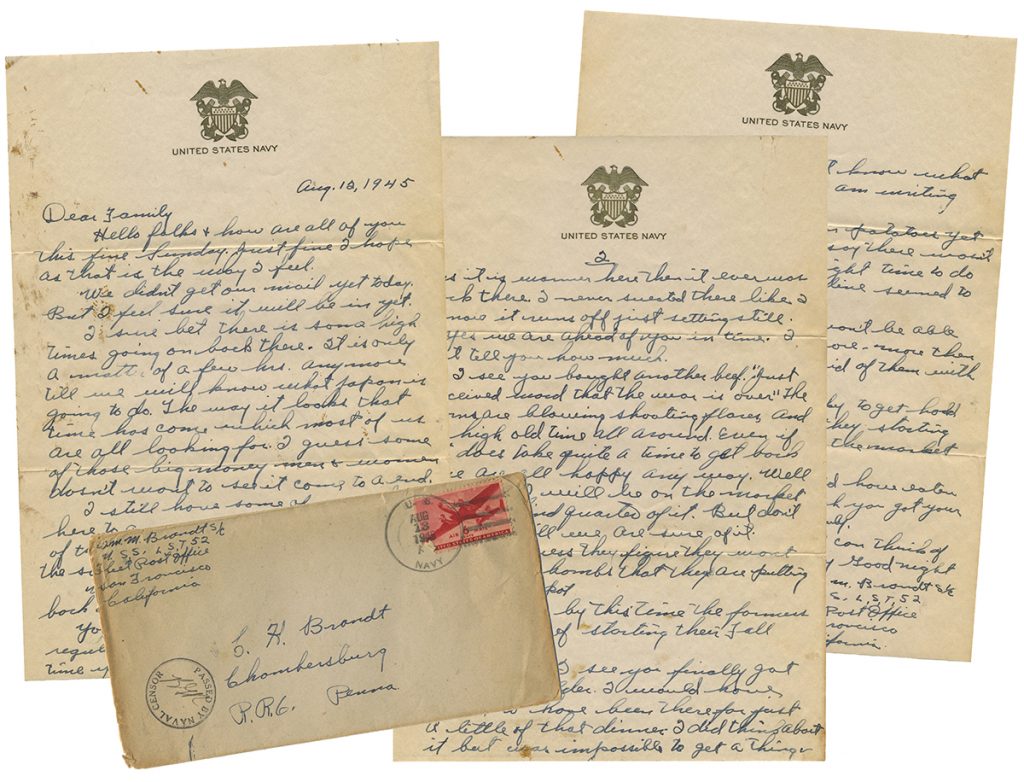 UNITED STATES NAVY
Aug. 12, 1945
Dear Family
Hello folks & how are all of you
this fine Sunday. Just fine I hope
as that is the way I feel.
We didn't get our mail yet today.
But I feel sure it will be in yet.
I sure bet there is some high
times going on back there. It is only
a matter of a few hrs. anymore
till we will know what Japan is
going to do. The way it looks that
time has come which most of us
are all looking for. I guess some
of those big money men & women
doesn't want to see it come to a end.
I still have some
here to
of t
the s
back
yo
regul
time y
Wm. M. Brandt S/c
U.S.S. L.S.T. 52
Fleet Post Office
San Francisco
California
U.S.
AUG
13
1945
NAVY
AIR MAIL
UNITED STATES OF AMERICA
C. H. Brandt
Chambersburg
R.R.6. Penna.
PASSED BY NAVAL CENSOR
UNITED STATES NAVY
2
s it is warmer here then it ever was
ck there. I never sweated there like I
now it runs off just setting still.
Yes we are ahead of you in time. I
't tell you how much.
I see you bought another beef. "Just
ceived word that the war is over" The
ns are blowing shooting flares, and
high old time all around. Even if
does take quite a time to get back
e are all happy any way. Well
will be on the market
nd quarter of it. But don't
till we are sure of it.
ess they figure they want
bombs that they are putting
pot
by this time the farmers
of starting their Fall
I see you finally got
lder. I would have
have been there for just
a little of that dinner. I did think about
it but was impossible to get a thing
UNITED STATES NAVY
I know what
am writing
n potatoes yet
say there won't
ght time to do
line seemed to
on't be able
ore. more then
id of them with
y to get hold
hey, starting
the market
d how eaten
h you got your
can think of
y Good night
m. Brandt S/c
S. L.S.T. 52
Post Office
ancisco
ifornia.